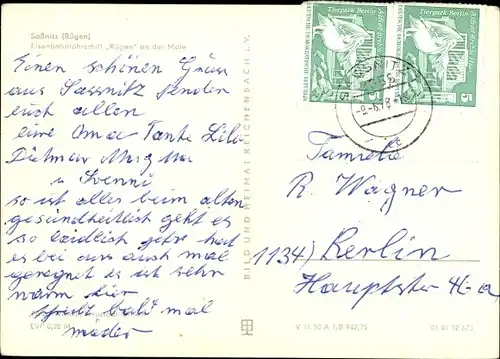 Saßnitz (Rügen)
Eisenbahnfährschiff "Rügen" an der Mole
Einen schönen Gruss
aus Sassnitz senden
euch allen
eure Oma Tante Lilo
Dietmar
u. Svenni
so ist alles beim alten
gesundheitlich geht es
so leidlich hat
es bei uns auch mal
geregnet es ist sehr
warm hier
bald mal
wieder
EVP 0,20 M
BILD UND HEIMAT REICHENBACH I. V.
V 11 50 A 1/B 942/75
01 01 12 673
Tierpark Berlin
DEUTSCHE DEMOKRATISCHE REPUBLIK
5
Tierpark Berlin
5
Familie
R. Wagner
1134) Berlin
Hauptstr 4-a